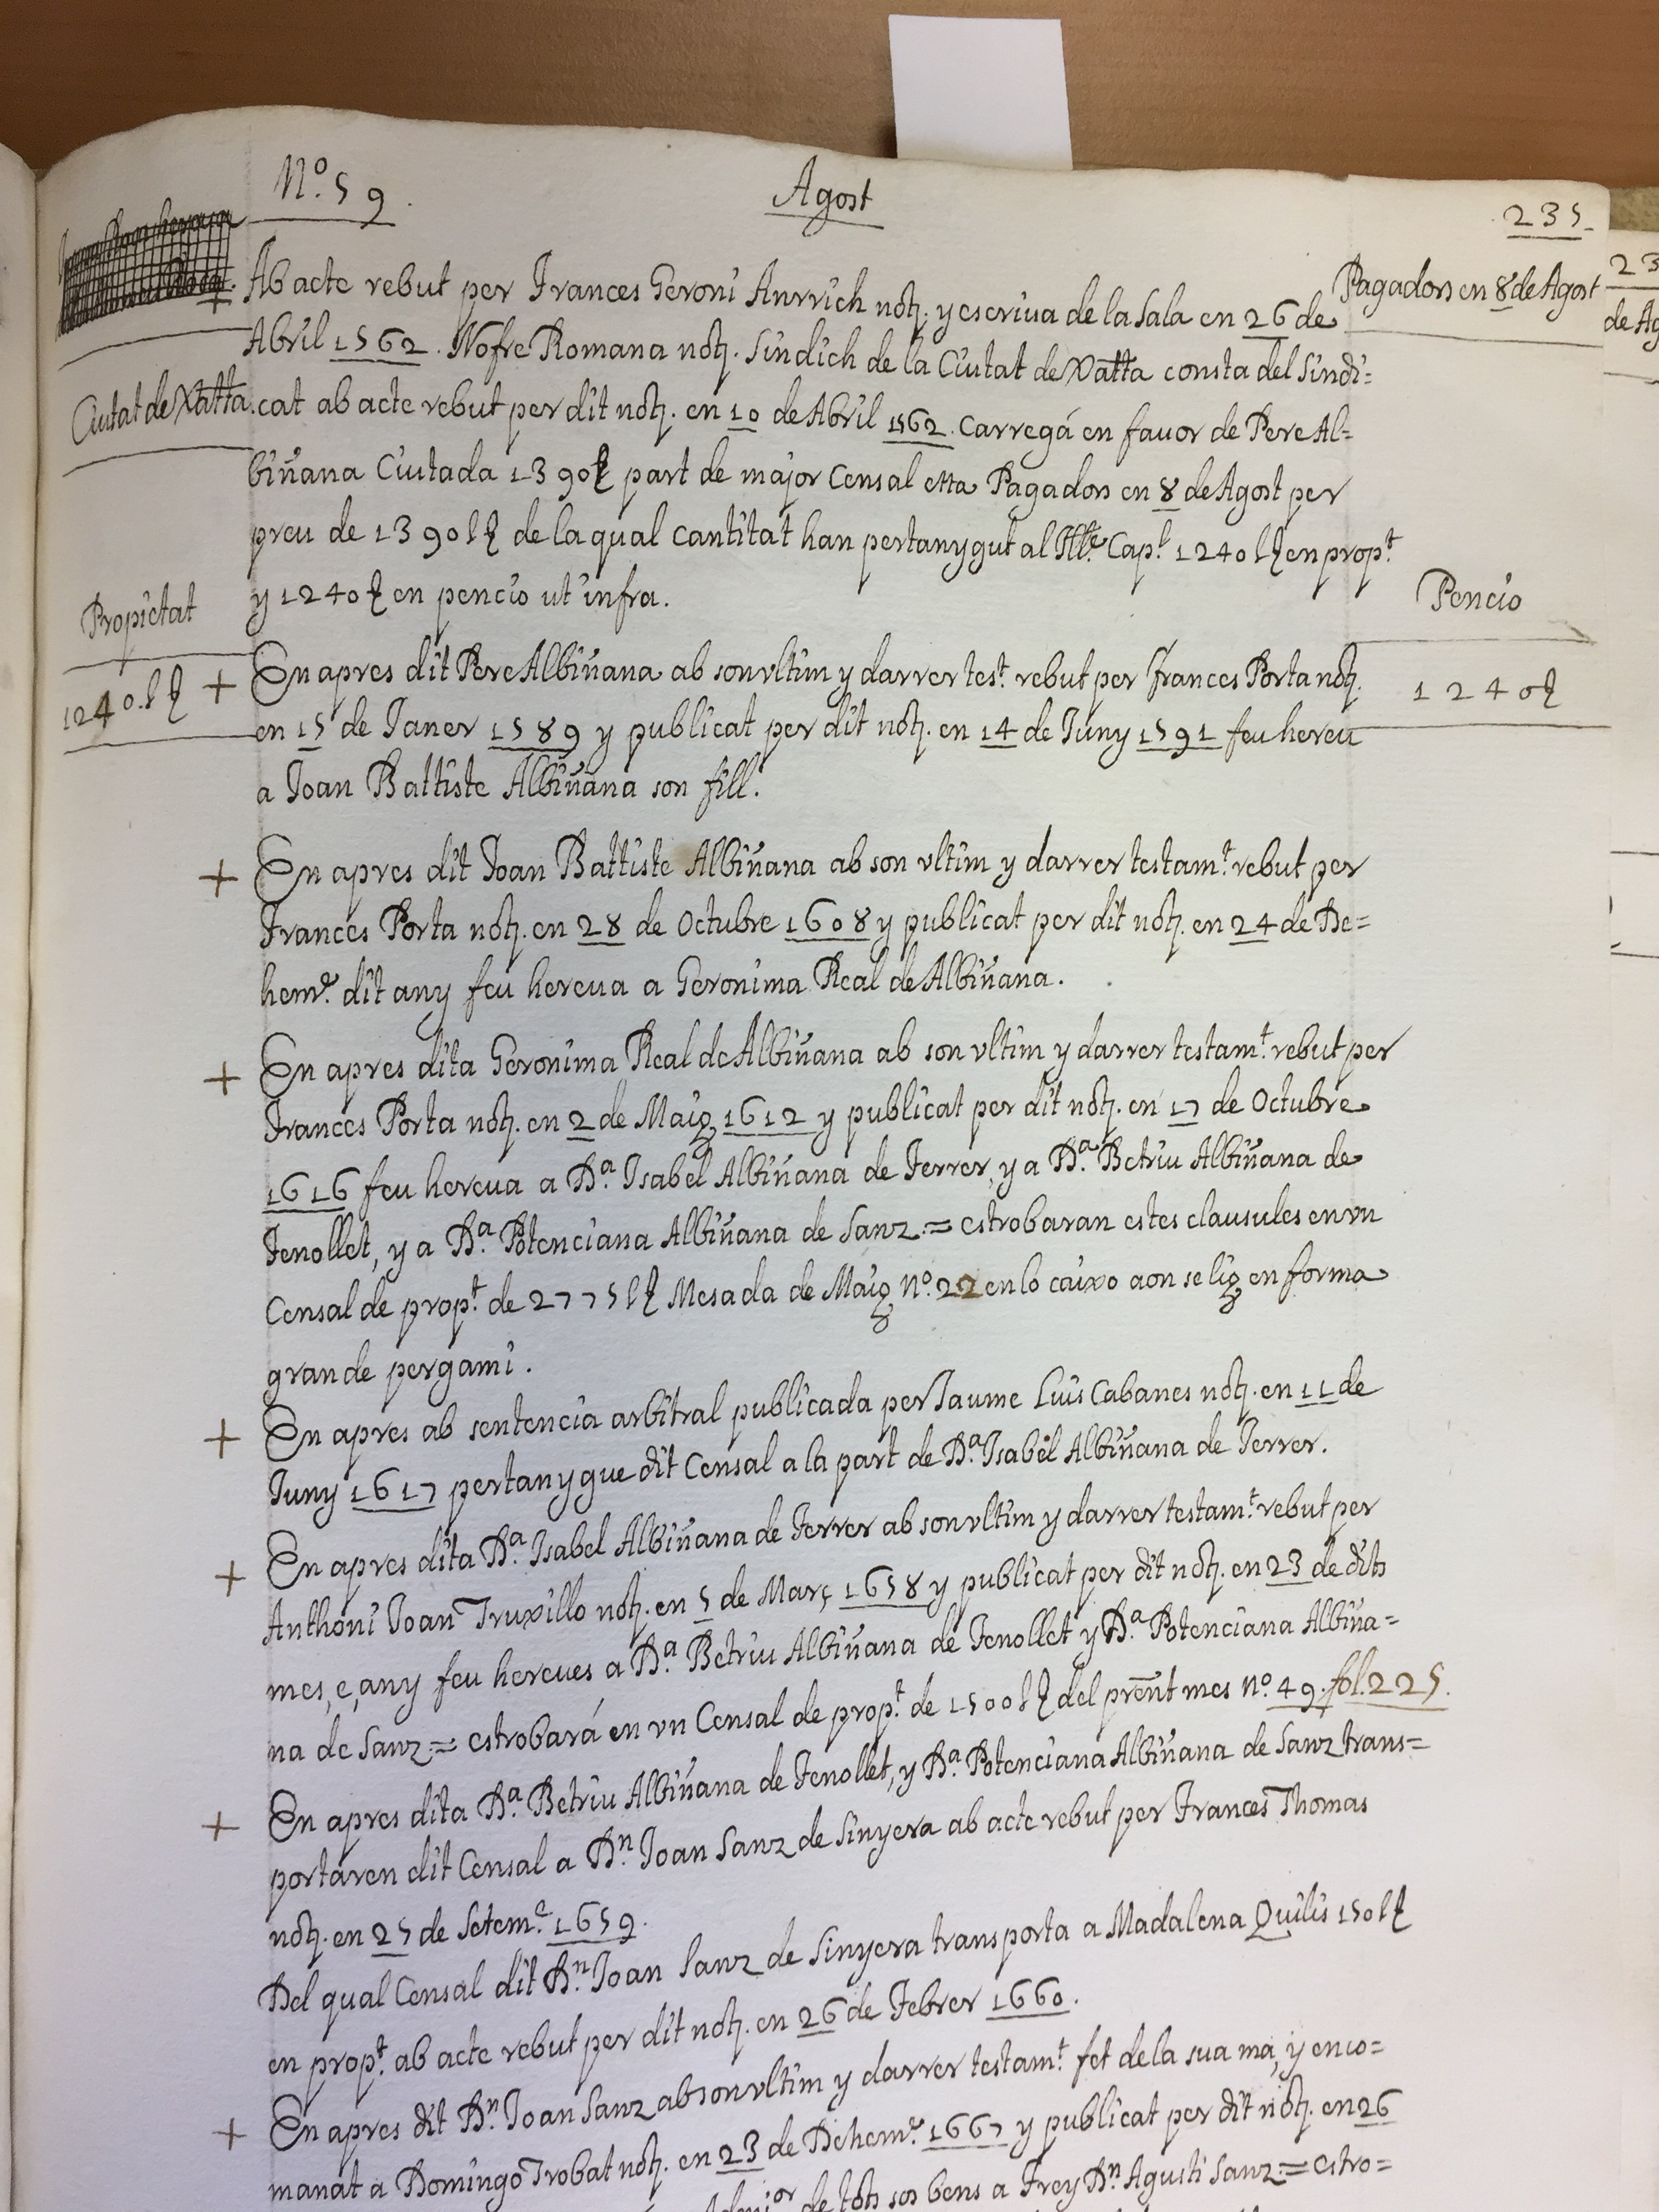 Nº. 59.
Agost
235.
Pagadors en 8 de Agost
Ab acte rebut per Frances Geroni Anrrich notẓ. y escriua de la Sala en 26 de
Abril 1562. Nofre Romana notẓ. Sindich de la Ciutat de Xatta consta del Sindi=
Ciutat de Xatta.
cat ab acte rebut per dit notẓ. en 10 de Abril 1562. Carregá en fauor de Pere Al=
biñana Ciutada 1390 ẜ part de major Censal etta Pagadors en 8 de Agost per
preu de 1390 l ẜ de la qual cantitat han pertanygut al Illᵉ. Capˡ. 1240 l ẜ en propᵗ.
y 1240 ẜ en pencio ut infra.
Propietat
1240. l ẜ
Pencio
1240 ẜ
+ En apres dit Pere Albiñana ab son vltim y darrer testᵗ. rebut per Frances Porta notẓ.
en 15 de Janer 1589 y publicat per dit notẓ. en 14 de Juny 1591 feu hereu
a Joan Battiste Albiñana son fill.
+ En apres dit Joan Battiste Albiñana ab son vltim y darrer testamᵗ. rebut per
Frances Porta notẓ. en 28 de Octubre 1608 y publicat per dit notẓ. en 24 de De=
hemᵉ. dit any feu hereua a Geronima Real de Albiñana.
+ En apres dita Geronima Real de Albiñana ab son vltim y darrer testamᵗ. rebut per
Frances Porta notẓ. en 2 de Maig 1612 y publicat per dit notẓ. en 17 de Octubre
1616 feu hereua a Dᵃ. Isabel Albiñana de Ferrer, y a Dᵃ. Betriu Albiñana de
Fenollet, y a Dᵃ. Potenciana Albiñana de Sanz.= estrobaran estes clausules en vn
Censal de propᵗ. de 2775 l ẜ Mesada de Maig nº. 22 en lo caixo aon se lig en forma
gran de pergami.
+ En apres ab sentencia arbitral publicada per Jaume Luis Cabanes notẓ. en 11 de
Juny 1617 pertanygue dit Censal a la part de Dᵃ. Isabel Albiñana de Ferrer.
+ En apres dita Dᵃ. Isabel Albiñana de Ferrer ab son vltim y darrer testamᵗ. rebut per
Anthoni Joan Truxillo notẓ. en 5 de Març 1658 y publicat per dit notẓ. en 23 de dits
mes, e, any feu hereues a Dᵃ. Betriu Albiñana de Fenollet y Dᵃ. Potenciana Albiña=
na de Sanz = estrobará en vn Censal de propᵗ. de 1500 l ẜ del preñt mes nº. 49. fol. 225.
+ En apres dita Dᵃ. Betriu Albiñana de Fenollet, y Dᵃ. Potenciana Albiñana de Sanz trans=
portaren dit Censal a Dⁿ. Joan Sanz de Sinyera ab acte rebut per Frances Thomas
notẓ. en 25 de Setemᵉ. 1659.
Del qual Censal dit Dⁿ. Joan Sanz de Sinyera transporta a Madalena Quilis 150 l ẜ
en propᵗ. ab acte rebut per dit notẓ. en 26 de Febrer 1660.
+ En apres dit Dⁿ. Joan Sanz ab son vltim y darrer testamᵗ. fet de la sua ma, y enco=
manat a Domingo Trobat notẓ. en 23 de Dehemᵉ. 1667 y publicat per dit notẓ. en 26
de tots sos bens a Frey Dⁿ. Agusti Sanz.= estro=
23
de Ag